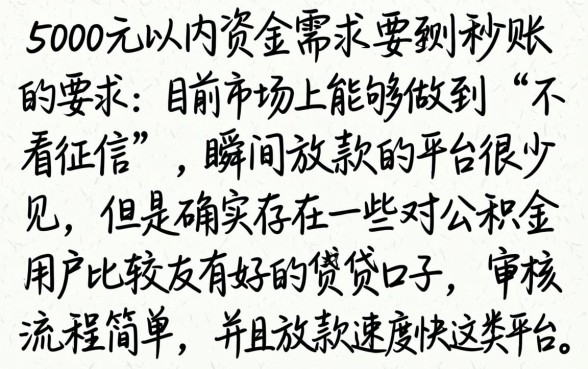 5000元以内资金需求要到秒账
的要求：目前市场上能够做到“不
看征信”，瞬间放款的平台很少
见，但是确实存在一些对公积金
用户比较友有好的贷贷口子，审核
流程简单，并且放款速度快这类平台。